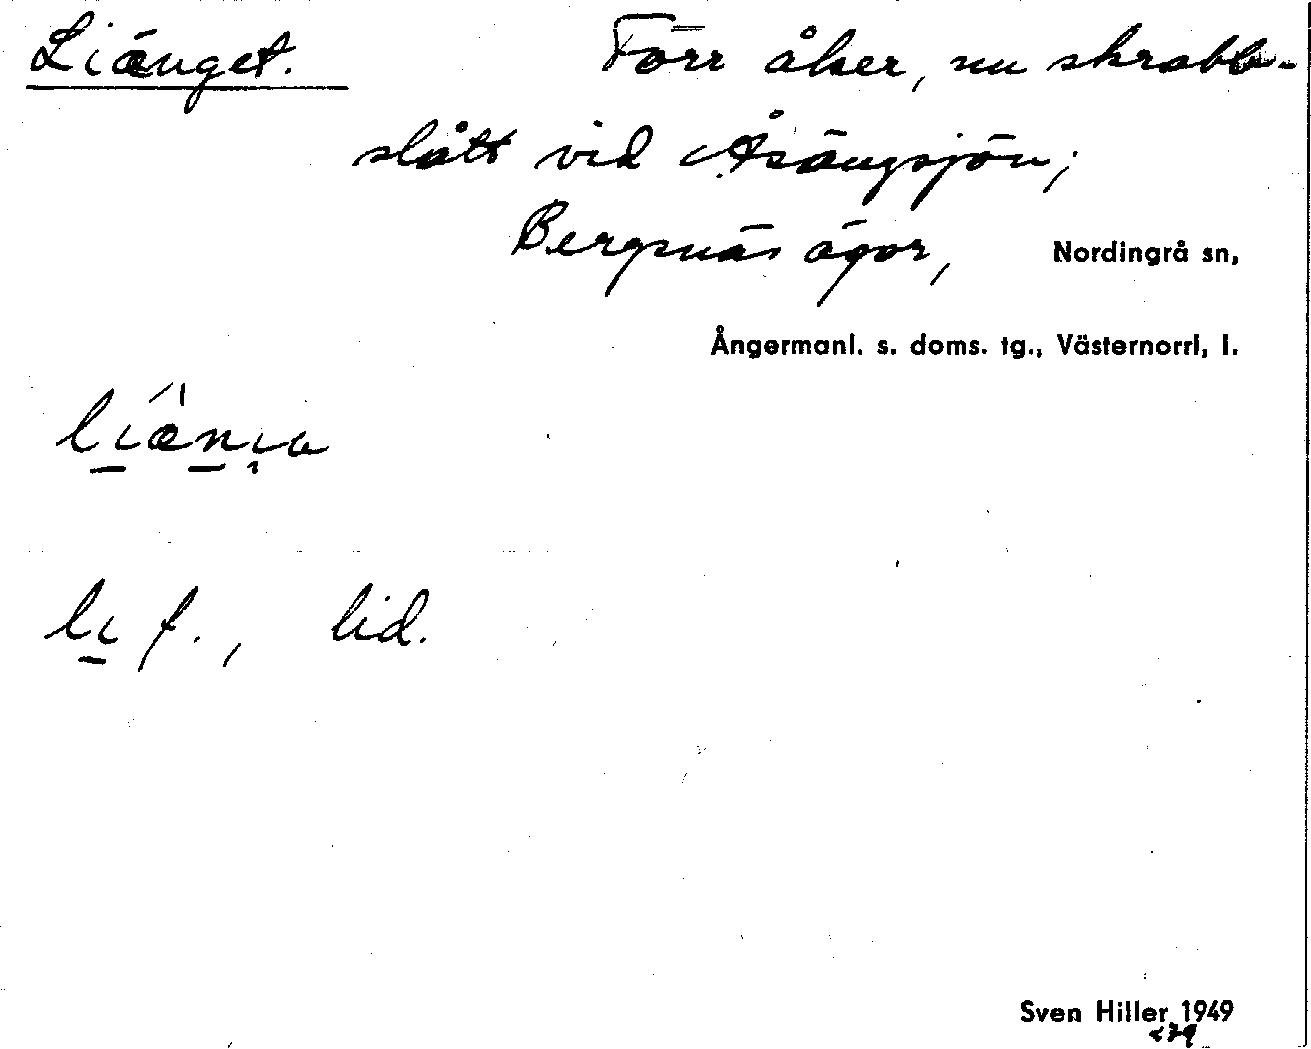 Liänget. Förr åker, nu skrabb-
slått vid Åsängsjön;
Bergsnäs ägor, Nordingrå sn,
Ångermanl. s. doms. tg., Västernorrl, l.
li f., lid.
Sven Hiller 1949